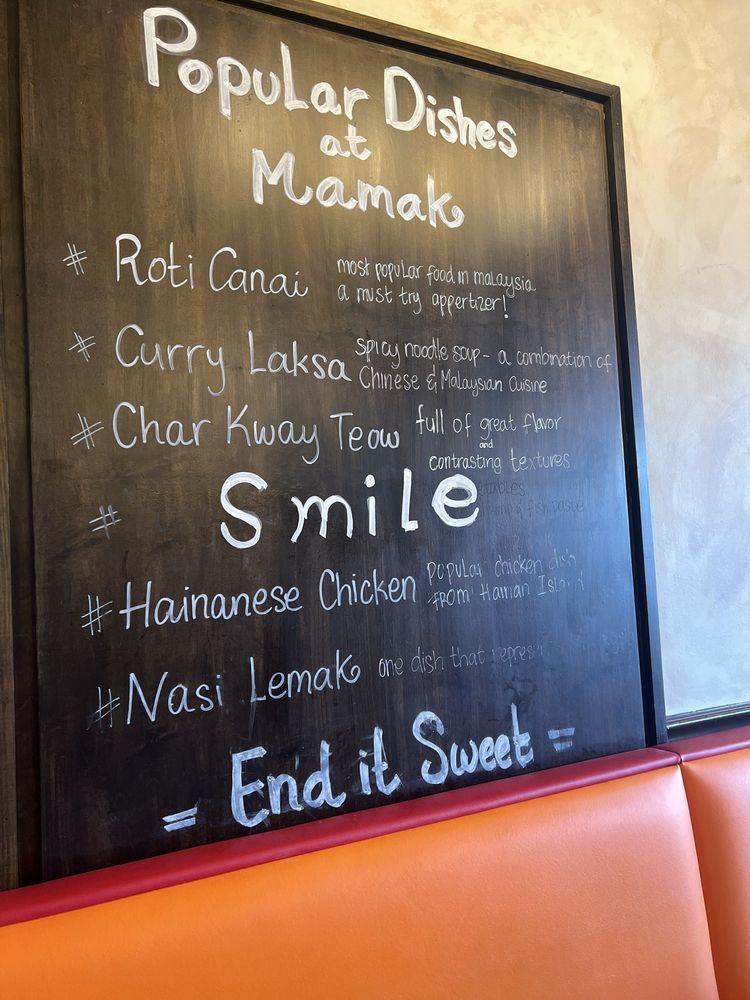 Popular Dishes
at
Mamak
# Roti Canai most popular food in malaysia
a must try appertizer!
# Curry Laksa spicy noodle soup - a combination of
Chinese & Malaysian Cuisine
# Char Kway Teow full of great flavor
and
contrasting textures
# Smile
fish paste
# Hainanese Chicken popular chicken dish
from Hainan Island
# Nasi Lemak one dish that
= End it Sweet =